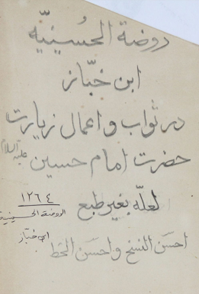 روضة الحسينيّه
ابن خبّاز
در ثواب و اعمال زيارت
حضرت امام حسين عليه السلام
لعلّه بغير طبع
١٢٦٤
الروضة الحسينية
ابن خباز
احسن النسخ و احسن الخط